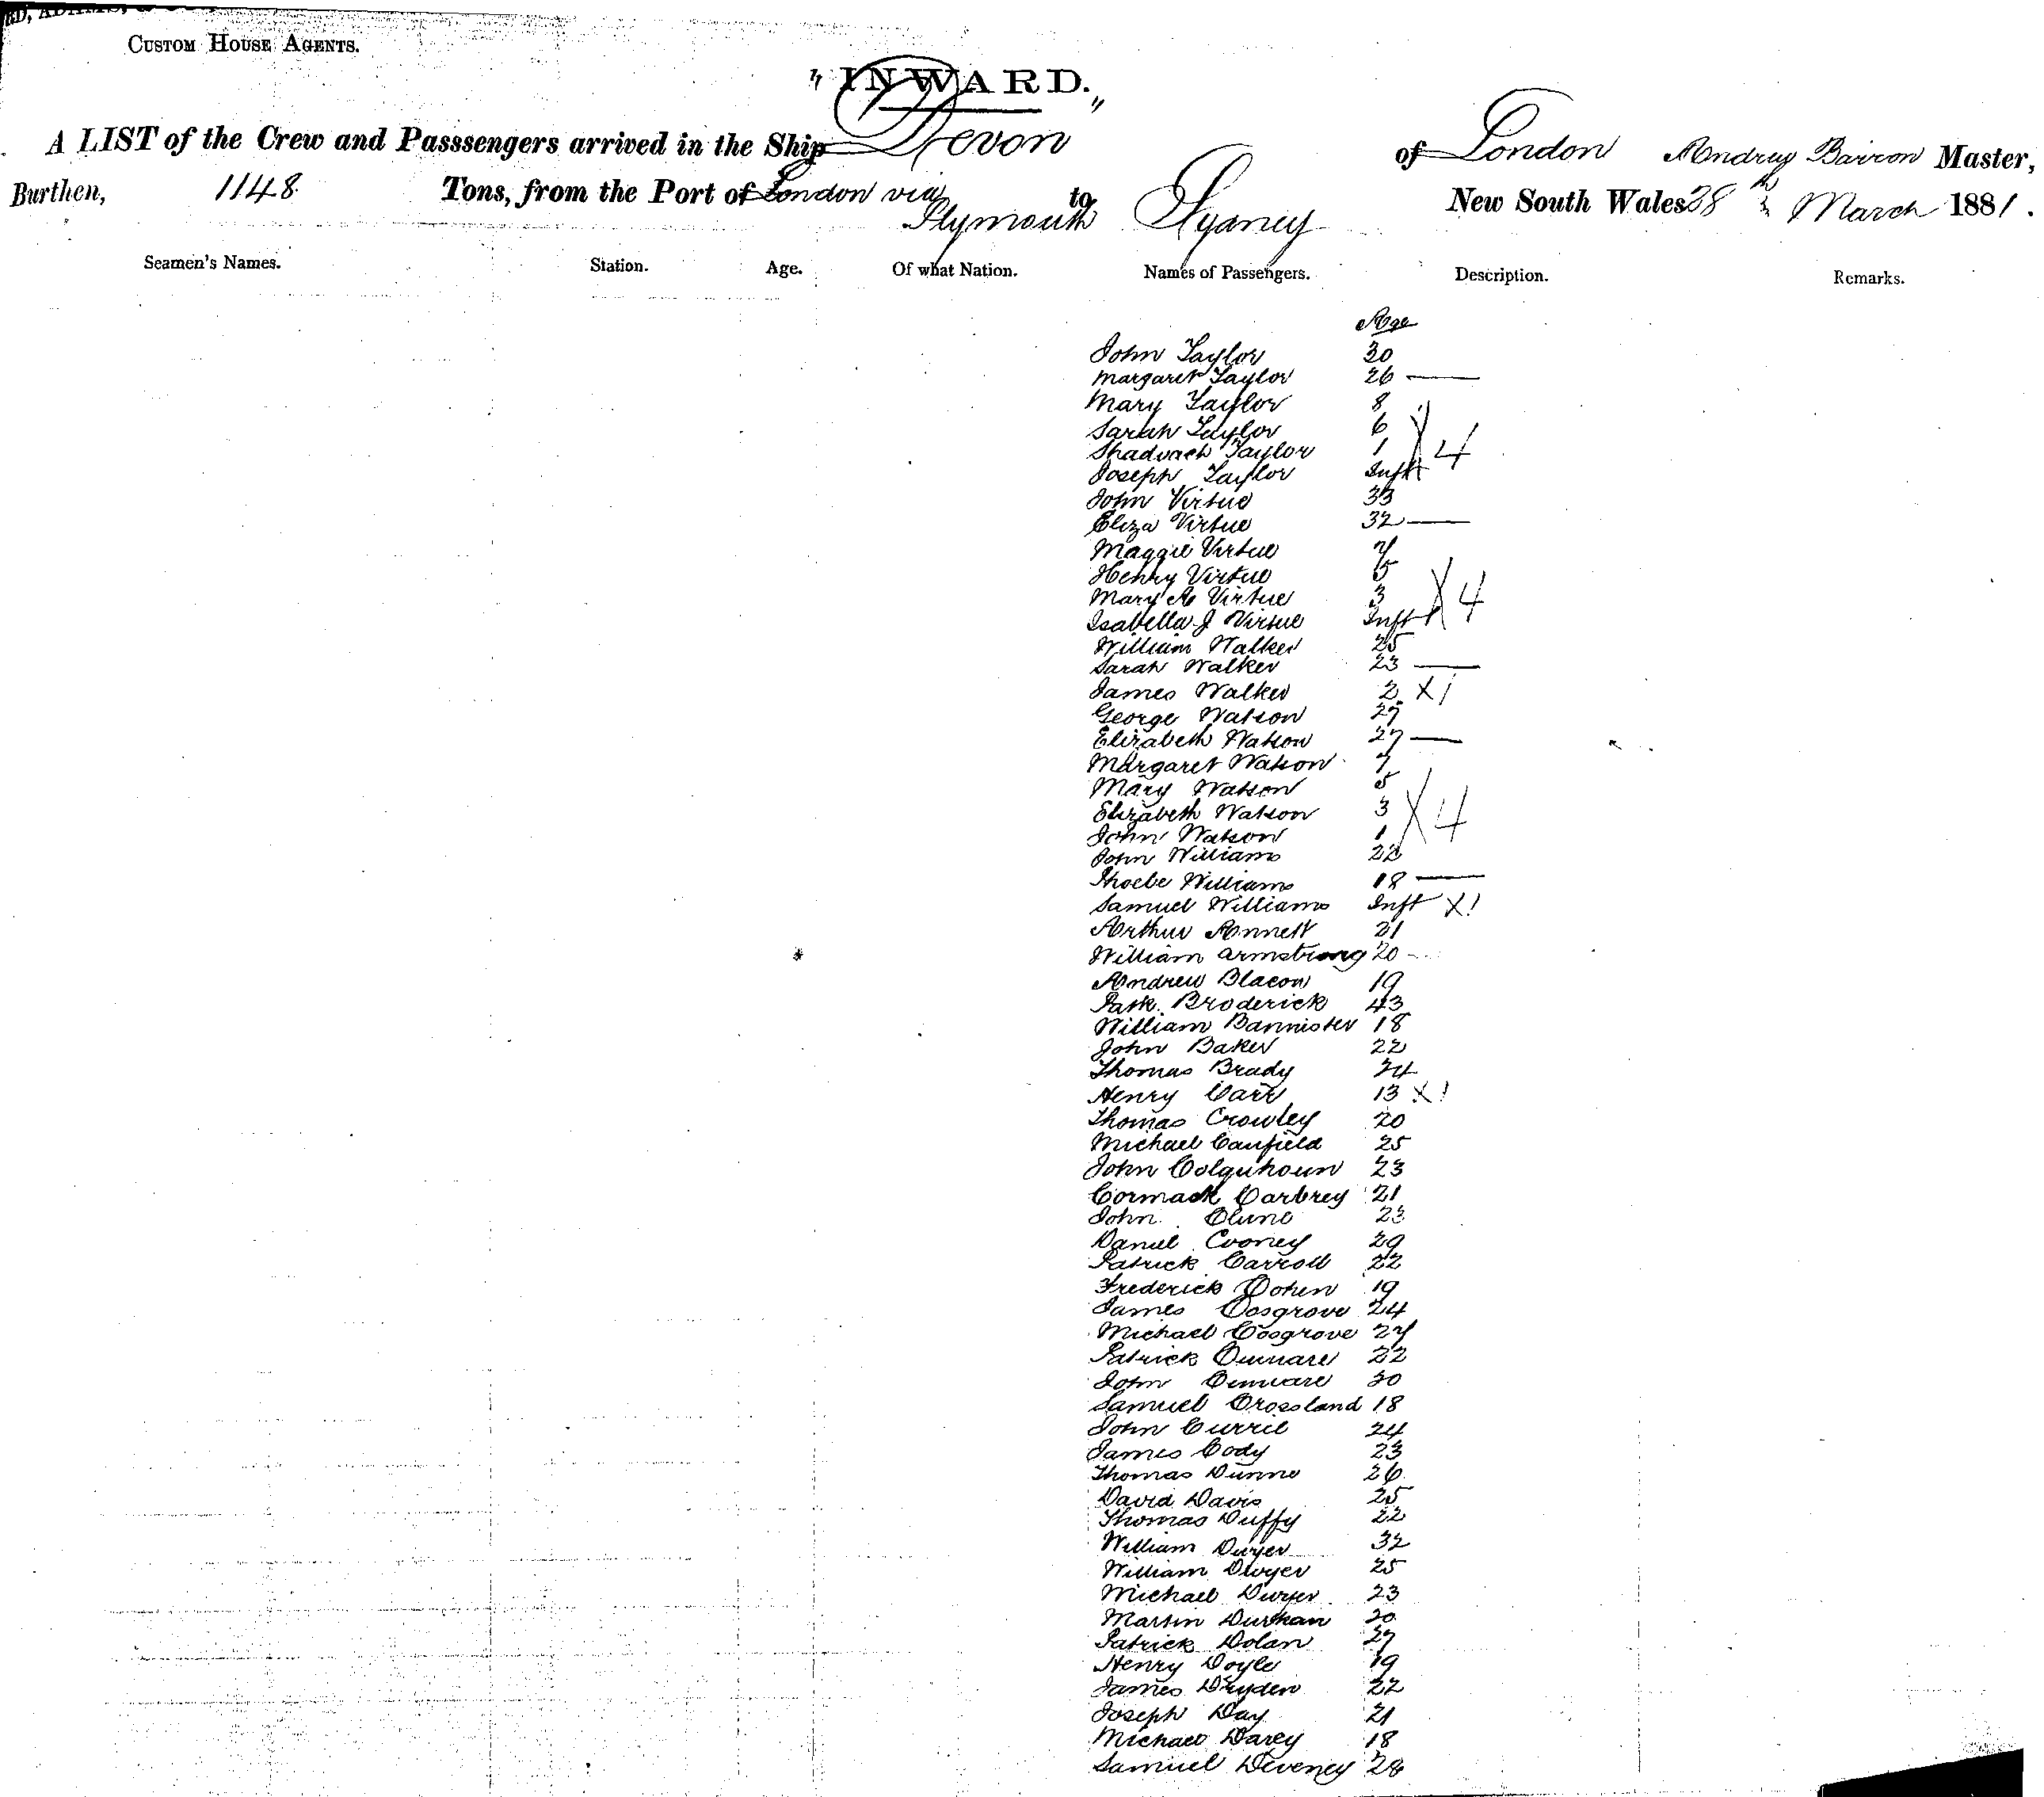 CUSTOM HOUSE AGENTS.
"INWARD."
A LIST of the Crew and Passsengers arrived in the Ship Devon of London Andrew Barron Master,
Burthen, 1148 Tons, from the Port of London via Plymouth to Sydney New South Wales 28th March 1881.
Seamen's Names. Station. Age. Of what Nation. Names of Passengers. Description. Remarks.
Age
John Taylor 30
Margaret Taylor 26 —
Mary Taylor 8
Sarah Taylor 6
Shadrach Taylor 1 X4
Joseph Taylor Inft
John Virtue 33
Eliza Virtue 32 —
Maggie Virtue 7
Henry Virtue 5
Mary A Virtue 3 X4
Isabella J Virtue Inft
William Walker 25
Sarah Walker 23 —
James Walker 2 X1
George Watson 27
Elizabeth Watson 27 —
Margaret Watson 7
Mary Watson 5
Elizabeth Watson 3 X4
John Watson 1
John Williams 22
Phoebe Williams 18 —
Samuel Williams Inft X1
Arthur Annett 21
William Armstrong 20
Andrew Blacow 19
Patk. Broderick 43
William Bannister 18
John Baker 22
Thomas Brady 24
Henry Carr 13 X1
Thomas Crowley 20
Michael Canfield 25
John Colquhoun 23
Cormack Carbrey 21
John Clune 23
Daniel Cooney 29
Patrick Carroll 22
Frederick Cohen 19
James Cosgrove 24
Michael Cosgrove 27
Patrick 22
John 30
Samuel Crossland 18
John Currie 24
James Cody 23
Thomas Dunne 26
David Davis 25
Thomas Duffy 22
William Dwyer 32
William Dwyer 25
Michael Dwyer 23
Martin Durkan 20
Patrick Dolan 27
Henry Doyle 19
James Dryden 22
Joseph Day 21
Michael Darcy 18
Samuel Deveney 28